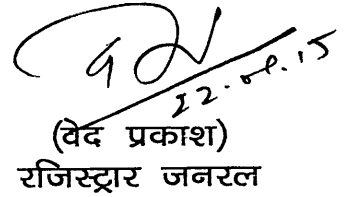 22.09.15
(वेद प्रकाश)
रजिस्ट्रार जनरल